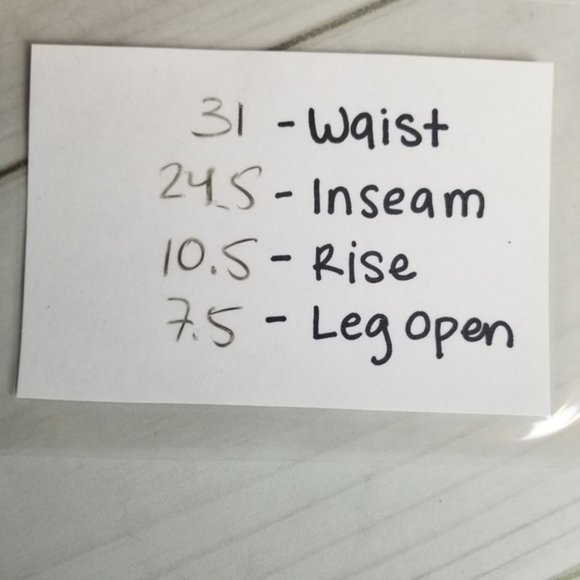 31 - Waist
24.5 - Inseam
10.5 - Rise
7.5 - Leg open